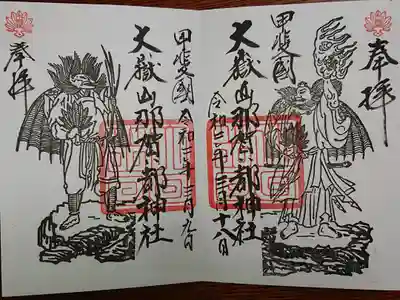 奉拝
甲斐國
大嶽山那賀都神社
令和三年三月十八日
甲斐國 令和年三月九日
大嶽山那賀都神社
奉拝